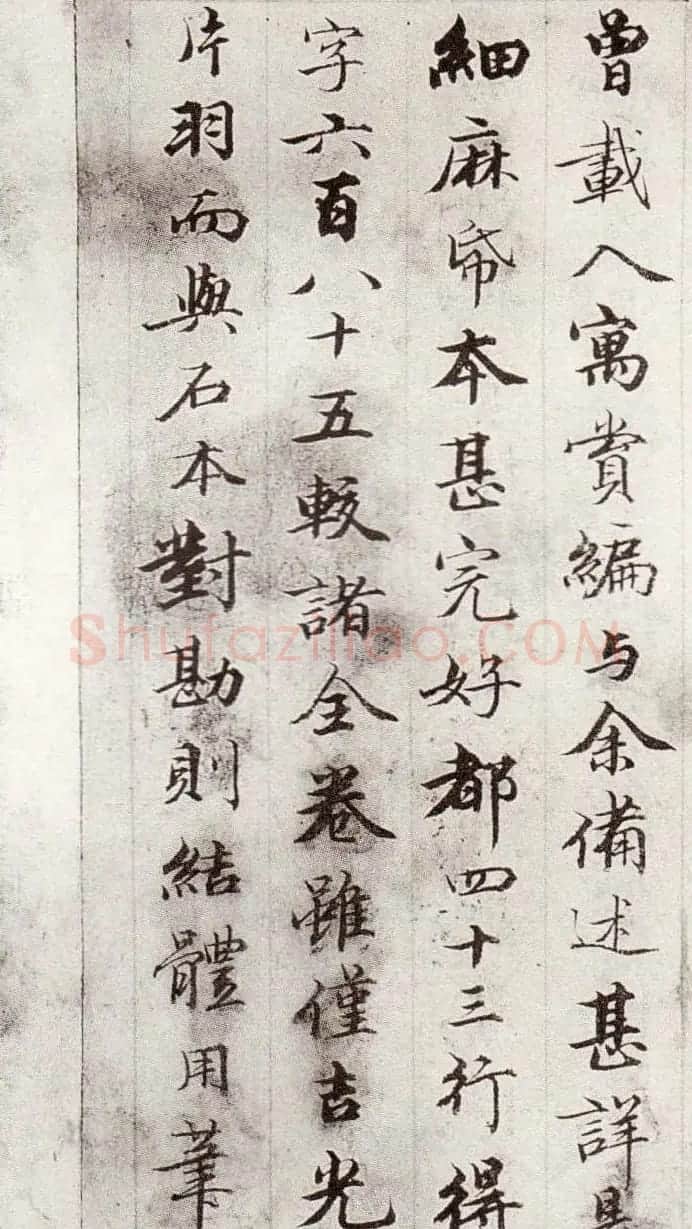 曾載入寓賞編与余備述甚詳
細麻帋本甚完好都四十三行得
字六百八十五較諸全卷雖僅吉光
片羽而與石本對勘則結體用筆
Shufaziliao.COM